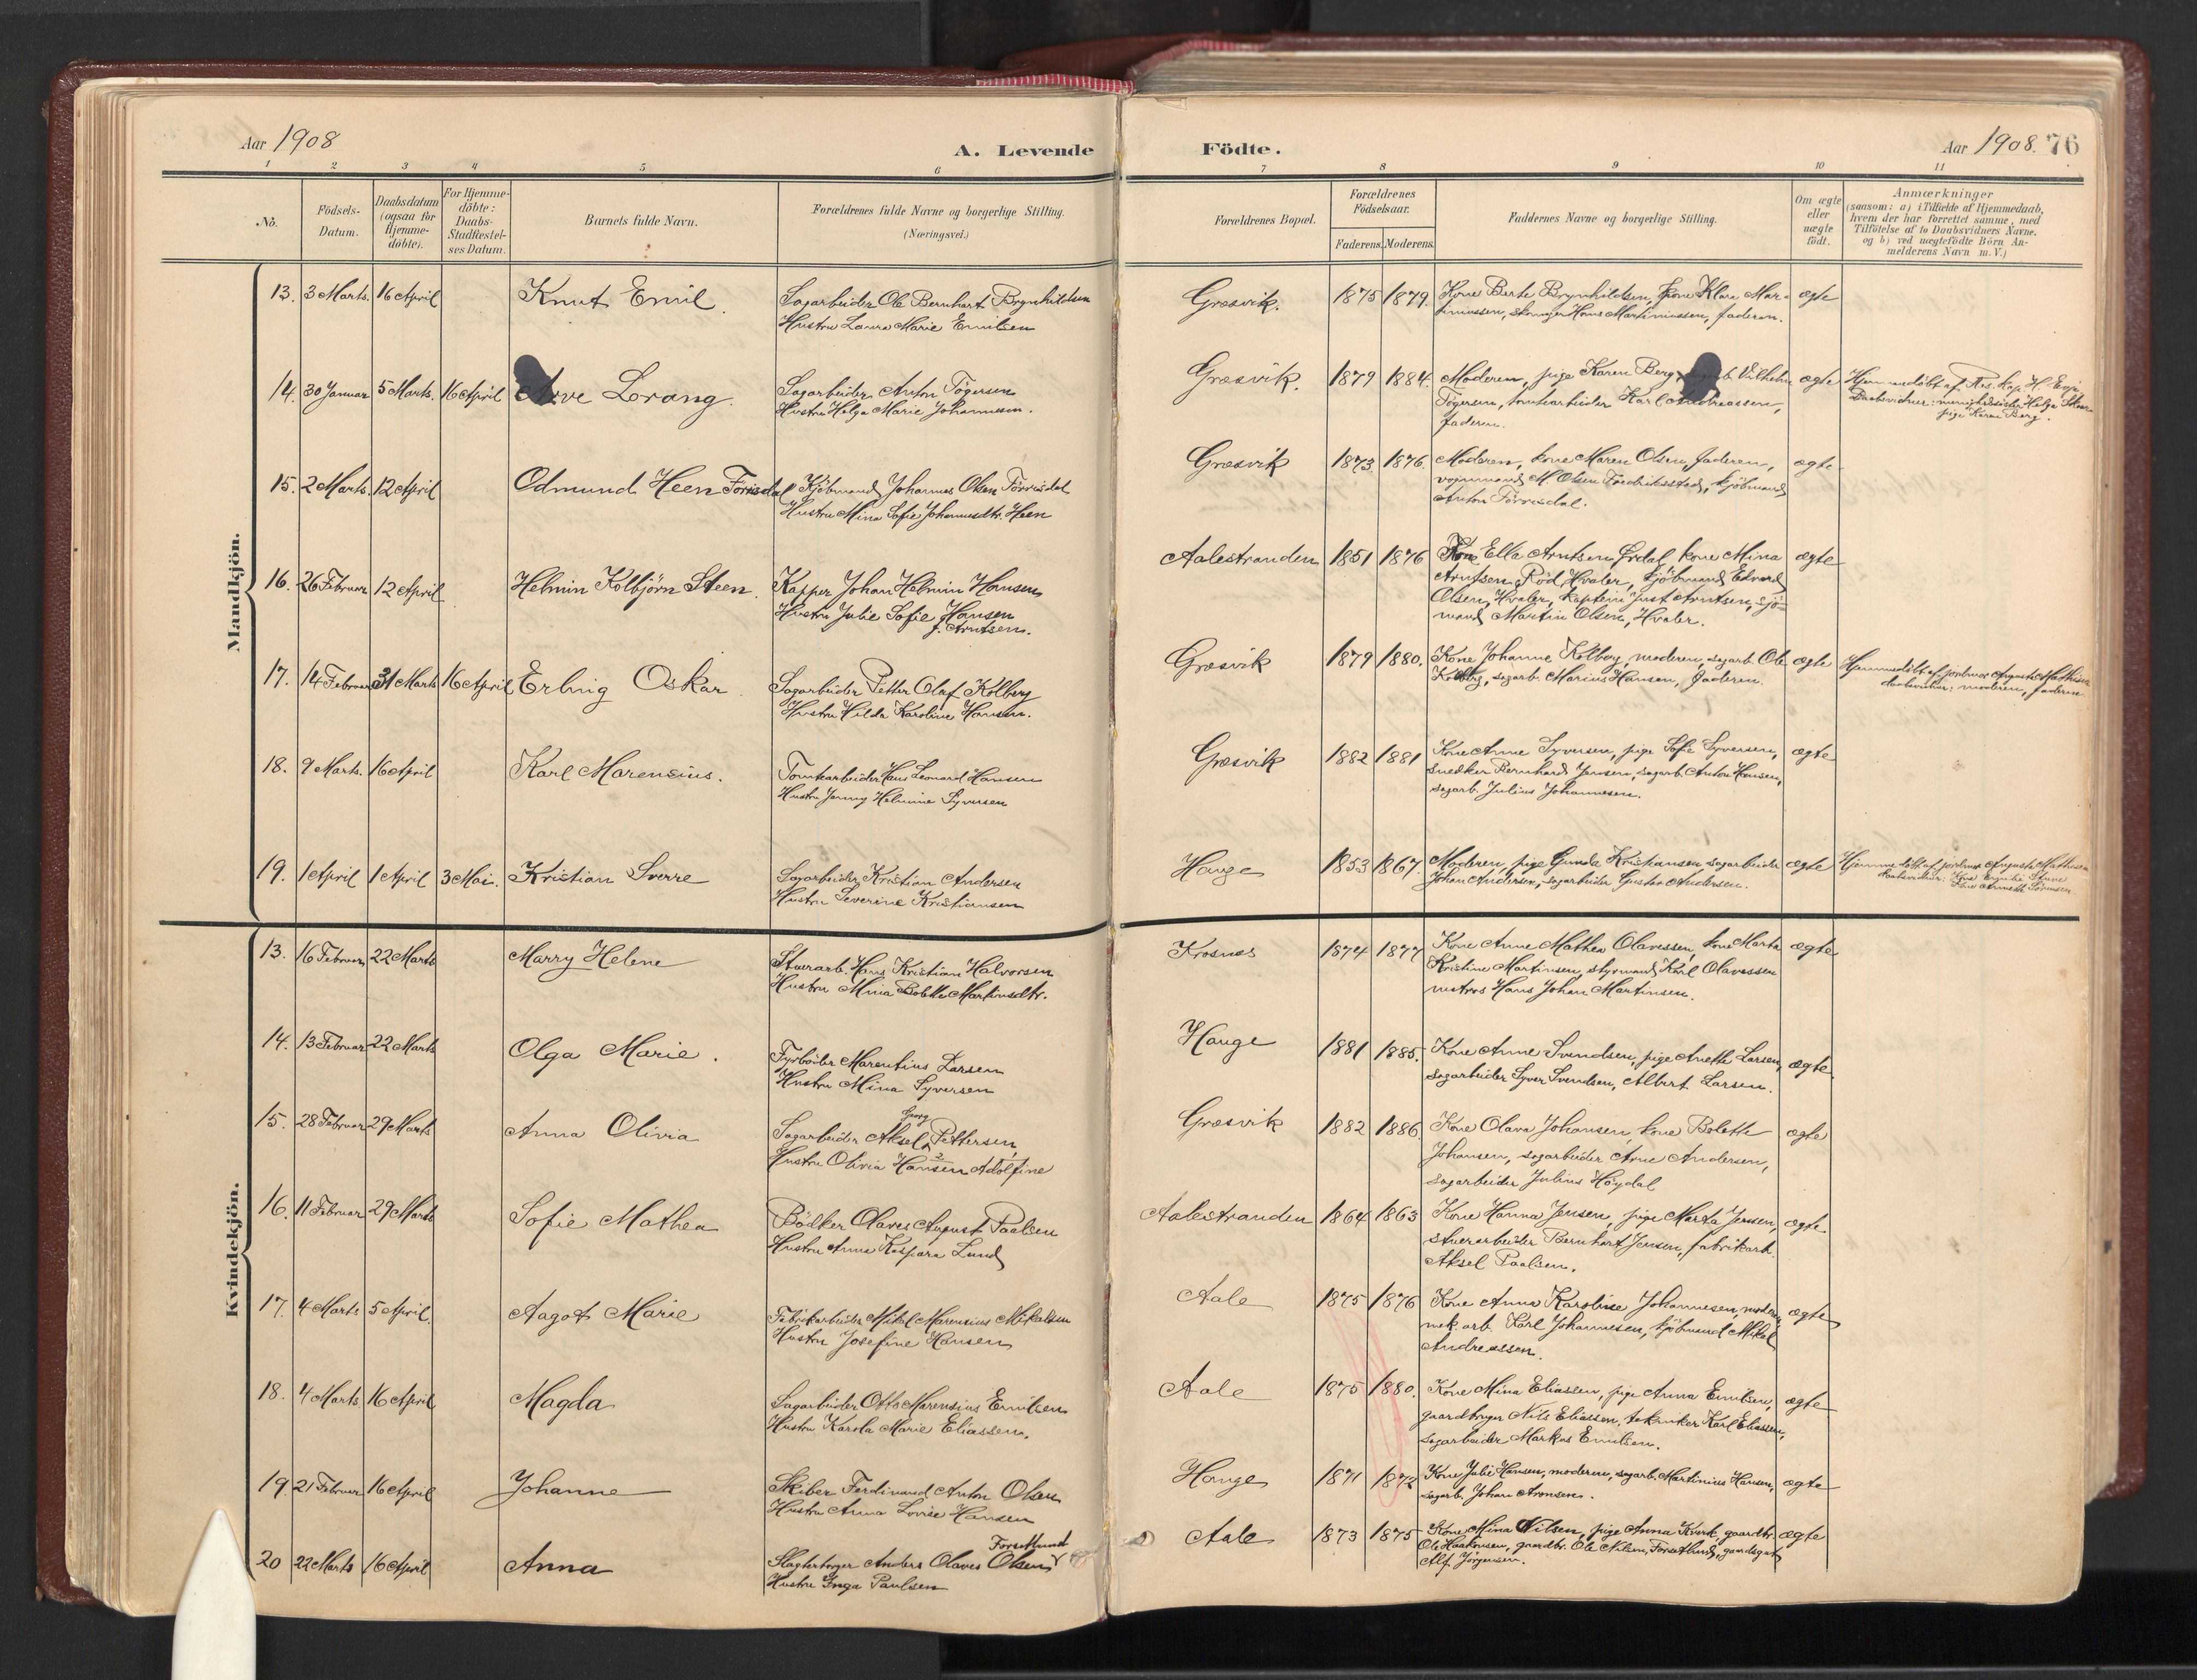 Aar 1908
A. Levende
1 2 3 4 5 6
No.
Födsels-Datum.
Daabsdatum (ogsaa for Hjemme-döbte).
For Hjemme-döbte: Daabs-Stadfæstel-ses Datum.
Barnets fulde Navn.
Forældrenes fulde Navne og borgerlige Stilling.
(Næringsvei.)
Mandkjön.
13. 3 Marts. 16 April Knut Emil. Sagarbeider Ole Bernhart Brynhildsen
Hustru Laura Marie Emilsen
14. 30 Januar 5 Marts. 16 April Lorang. Sagarbeider Anton Tögersen
Hustru Helga Marie Johannesen.
15. 2 Marts. 12 April Odmund Heen Förrisdal Kjöbmand Johannes Olsen Förrisdal
Hustru Mina Sofie Johannesdtr. Heen
16. 26 Februar 12 April Helmin Kolbjörn Steen. Kapper Johan Helmin Hansen
Hustru Julie Sofie Hansen
f. Arntsen.
17. 14 Februar 31 Marts 16 April Erling Oskar. Sagarbeider Petter Olaf Kölberg
Hustru Hilda Karoline Hansen.
18. 9 Marts. 16 April Karl Marensius. Tomtearbeider Hans Leonard Hansen
Hustru Jenny Helmine Syversen
19. 1 April 1 April 3 Mai. Kristian Sverre Sagarbeider Kristian Andersen
Hustru Severine Kristiansen
Kvindekjön.
13. 16 Februar 22 Marts Marry Helene Stuerarb. Hans Kristian Halvorsen
Hustru Mina Bolette Martinsdtr.
14. 13 Februar 22 Marts Olga Marie. Fyrböder Marentius Larsen
Hustru Mina Syversen
15. 28 Februar 29 Marts Anna Olivia Georg
Sagarbeider Aksel Pettersen,
Hustru Olivia Hansen Adolfine
16. 11 Februar 29 Marts Sofie Mathea Bödker Olaves August Paulsen
Hustru Anna Kaspara Lund
17. 4 Marts 5 April. Aagot Marie Fabrikarbeider Mikal Marensius Mikalsen
Hustru Josefine Hansen
18. 4 Marts 16 April Magda Sagarbeider Otto Marensius Emilsen
Hustru Karola Marie Eliassen.
19. 21 Februar 16 April Johanne Skiber Ferdinand Anton Olsen
Hustru Anna Lovise Hansen
20 22 Marts 16 April Anna Forsetlund
Slagterborger Anders Olaves Olsen
Hustru Inga Paulsen
Födte.
Aar 1908. 76
7 8 9 10 11
Forældrenes Bopæl.
Forældrenes Födselsaar.
Faderens. Moderens.
Faddernes Navne og borgerlige Stilling.
Om ægte eller uægte födt.
Anmærkninger
(saasom: a) i Tilfælde af Hjemmedaab,
hvem der har forrettet samme, med
Tilföielse af to Daabsvidners Navne.
og b) ved uægtefödte Börn An-
melderens Navn m.V.)
Græsvik. 1875 1879. Kone Berte Brynhildsen, kone Klara Mar-
tiniussen, Hans Martiniussen, faderen. ægte
Græsvik. 1879 1884. Moderen, pige Karen Berg, Vilhelm
Tögersen, tomtearbeider Karl Andreassen,
faderen. ægte Hjemmedöbt af Res. Kap. H.
Daabsvidner: menighedssöster Helga
pige Karen Berg.
Græsvik 1873 1876. Moderen, kone Maren Olsen, faderen,
vognmand M Olsen Fredriksstad, kjöbmand
Anton Förrisdal. ægte
Aalestranden 1851 1876 Kone Ella Arntsen Ørdal, kone Mina
Arntsen Röd, Hvaler, kjöbmand Edvard
Olsen, Hvaler, kaptein Just Arntsen, sjö-
mand Martin Olsen, Hvaler. ægte
Græsvik 1879 1880. Kone Johanne Kölberg, moderen, sagarb. Ole
Kölberg, sagarb. Marius Hansen, faderen. ægte Hjemmedöbt af jordmor Augusta Mathisen
daabsvidner: moderen, faderen
Græsvik 1882 1881 Kone Anne Syversen, pige Sofie Syversen,
snedker Bernhard Jensen, sagarb. Anton Hansen,
sagarb. Julius Johannesen. ægte
Hauge 1853 1867. Moderen, pige Gunda Kristiansen, sagarbeider
Johan Andersen, sagarbeider Gustav Andersen. ægte Hjemmedöbt af jordmor Augusta Mathisen
daabsvidner: Kone
Kone Annette Sörensen.
Krosnes 1874 1877 Kone Anne Mathea Olavessen, kone Marta
Kristine Martinsen, styrmand Karl Olavessen
matros Hans Johan Martinsen. ægte
Hauge 1881 1885. Kone Anne Svendsen, pige Anette Larsen,
sagarbeider Syver Svendsen, Albert Larsen. ægte
Græsvik 1882 1886. Kone Olava Johansen, kone Bolette
Johansen, sagarbeider Arne Andersen,
sagarbeider Julius Höydal ægte
Aalestranden 1864 1863 Kone Hanna Jensen, pige Marta Jensen,
stuerarbeider Bernhart Jensen, fabrikarb.
Aksel Paulsen. ægte
Aale 1875 1876 Kone Anna Karoline Johannesen, moderen,
mek. arb. Karl Johannesen, kjöbmand Mikal
Andreassen. ægte
Aale 1875 1880. Kone Mina Eliassen, pige Anna Emilsen,
gaardbruger Nils Eliassen, tekniker Karl Eliassen,
sagarbeider Markus Emilsen. ægte
Hauge 1871 1872 Kone Julie Hansen, moderen, sagarb. Martinius Hansen,
sagarb. Johan Aronsen. ægte
Aale 1873 1875 Kone Mina Nilsen, pige Anna Kverk, gaardbr.
Ole Haakonsen, gaardbr. Ole Nilsen, Forsetlund, gaardsgut
Alf Jörgensen. ægte